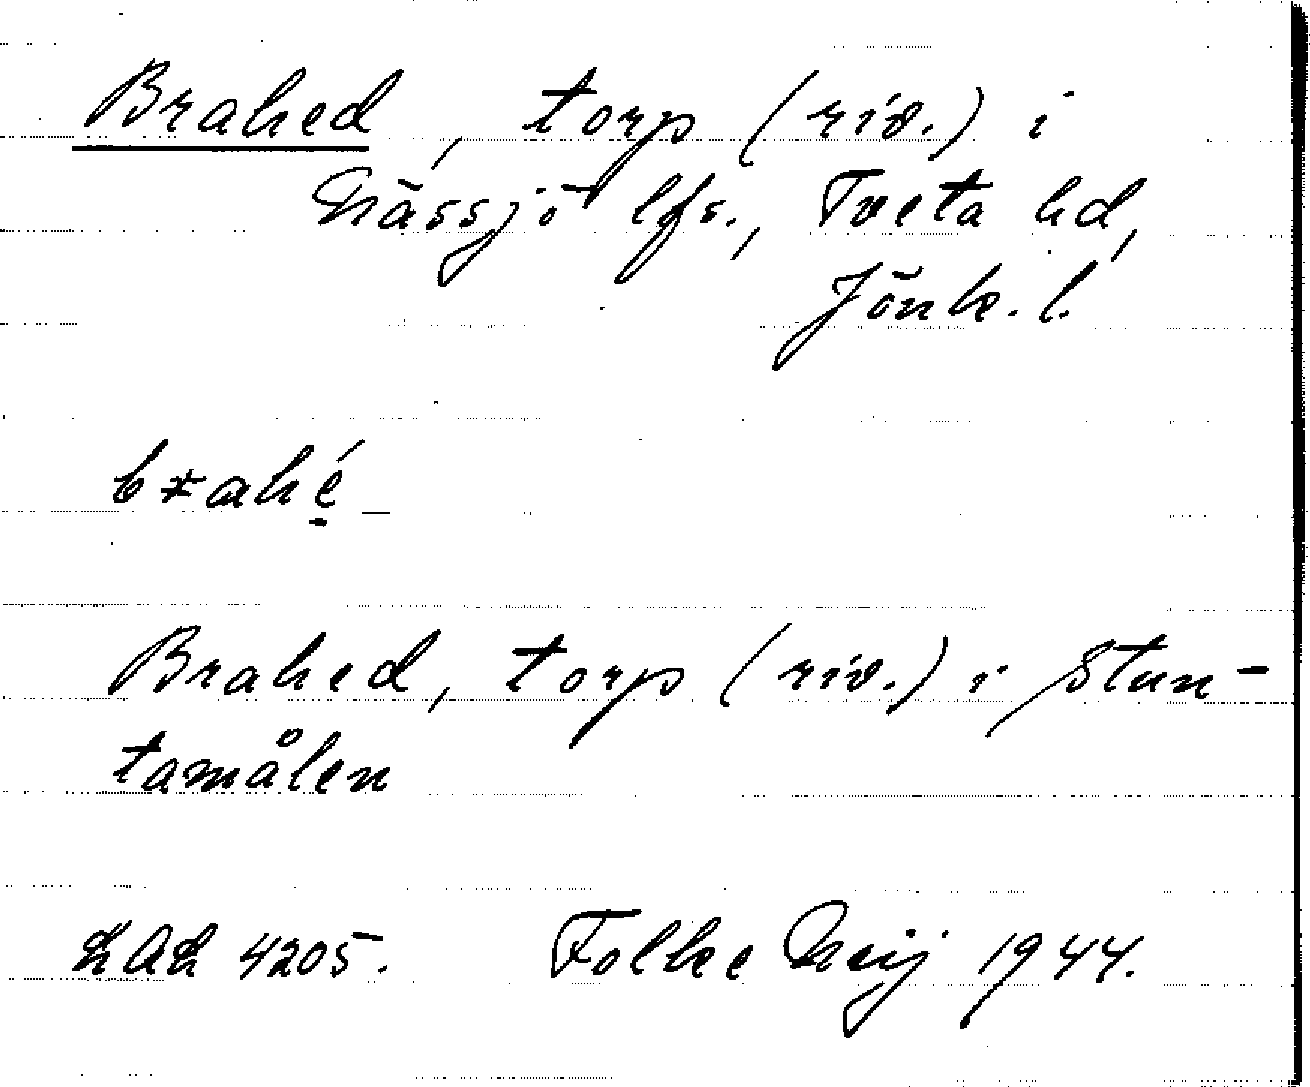 Brahed, torp (riv.) i
Nässjö lfs., Tveta hd,
Jönk. l.
Brahed, torp (riv.) i Stun-
tamålen
LAL 4205. Folke Neij 1944.